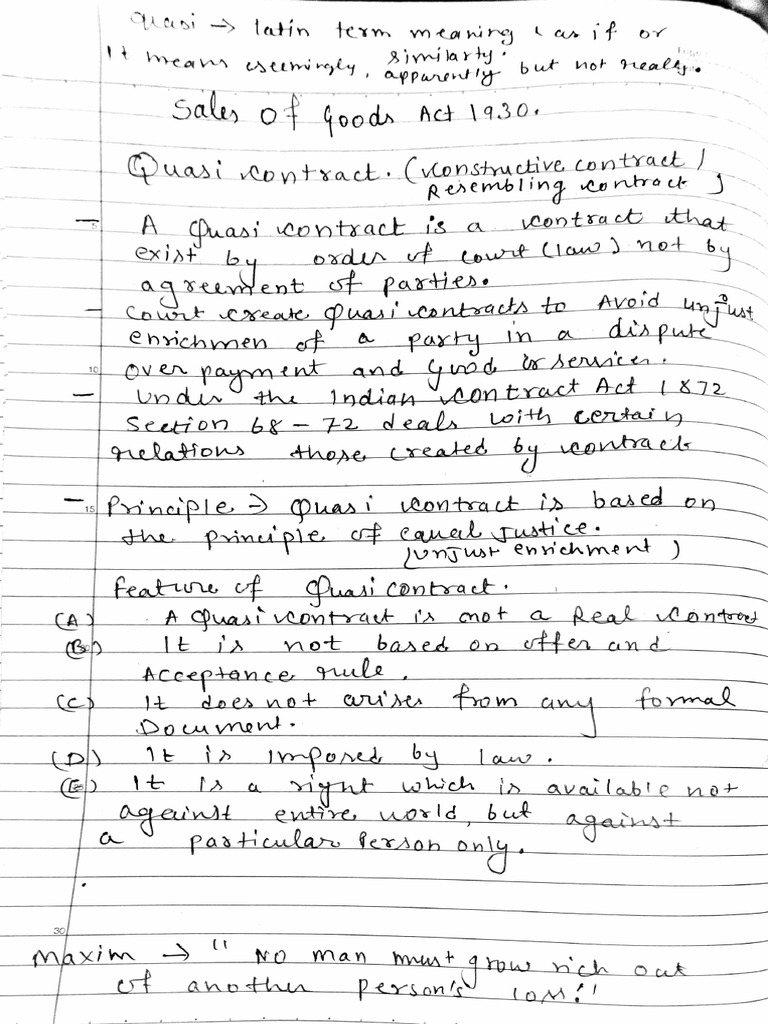 quasi → latin term meaning (as if or
similarty.
It means seemingly, apparently but not really.
Sales of Goods Act 1930.
Quasi contract. (constructive contract)
Resembling contract
- A Quasi contract is a contract that
exist by order of court (law) not by
agreement of parties.
- Court create Quasi contracts to Avoid unjust
enrichmen of a party in a dispute
10 over payment and good or services.
- Under the Indian Contract Act 1872
Section 68-72 deals with certain
relations those created by contract
- 15 Principle → Quasi contract is based on
the principle of equal justice.
(unjust enrichment)
feature of Quasi contract.
(A) A Quasi contract is not a Real contract
(B) It is not based on offer and
Acceptance rule.
(C) It does not arises from any formal
Document.
(D) It is imposed by law.
(E) It is a right which is available not
against entire world, but against
a particular Person only.
30
Maxim → "No man must grow rich out
of another person's loss."